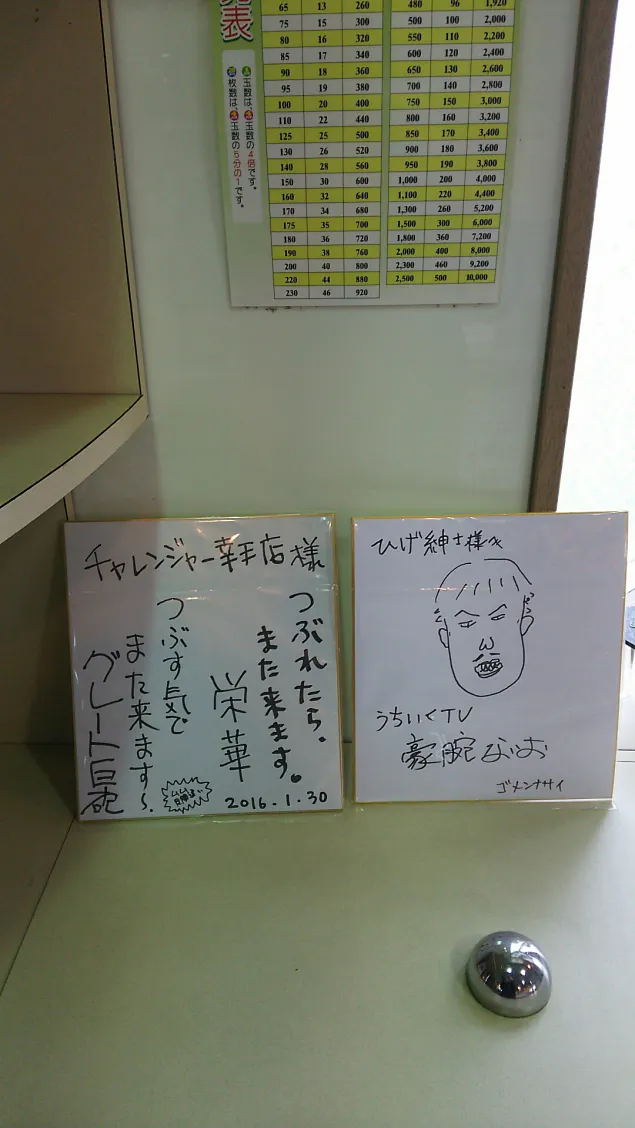 表
65 13 260
75 15 300
80 16 320
85 17 340
90 18 360
95 19 380
100 20 400
110 22 440
125 25 500
130 26 520
140 28 560
150 30 600
160 32 640
170 34 680
175 35 700
180 36 720
190 38 760
200 40 800
220 44 880
230 46 920
480 96 1,920
500 100 2,000
550 110 2,200
600 120 2,400
650 130 2,600
700 140 2,800
750 150 3,000
800 160 3,200
850 170 3,400
900 180 3,600
950 190 3,800
1,000 200 4,000
1,100 220 4,400
1,300 260 5,200
1,500 300 6,000
1,800 360 7,200
2,000 400 8,000
2,300 460 9,200
2,500 500 10,000
玉数は、玉数の4倍です。
枚数は、玉数の5分の1です。
チャレンジャー幸手店様
つぶれたら、
また来ます。
栄華
つぶす気で
また来ます〜。
グレート巨砲
2016.1.30
ひげ紳士様へ
うちいくTV
豪腕なお
ゴメンナサイ